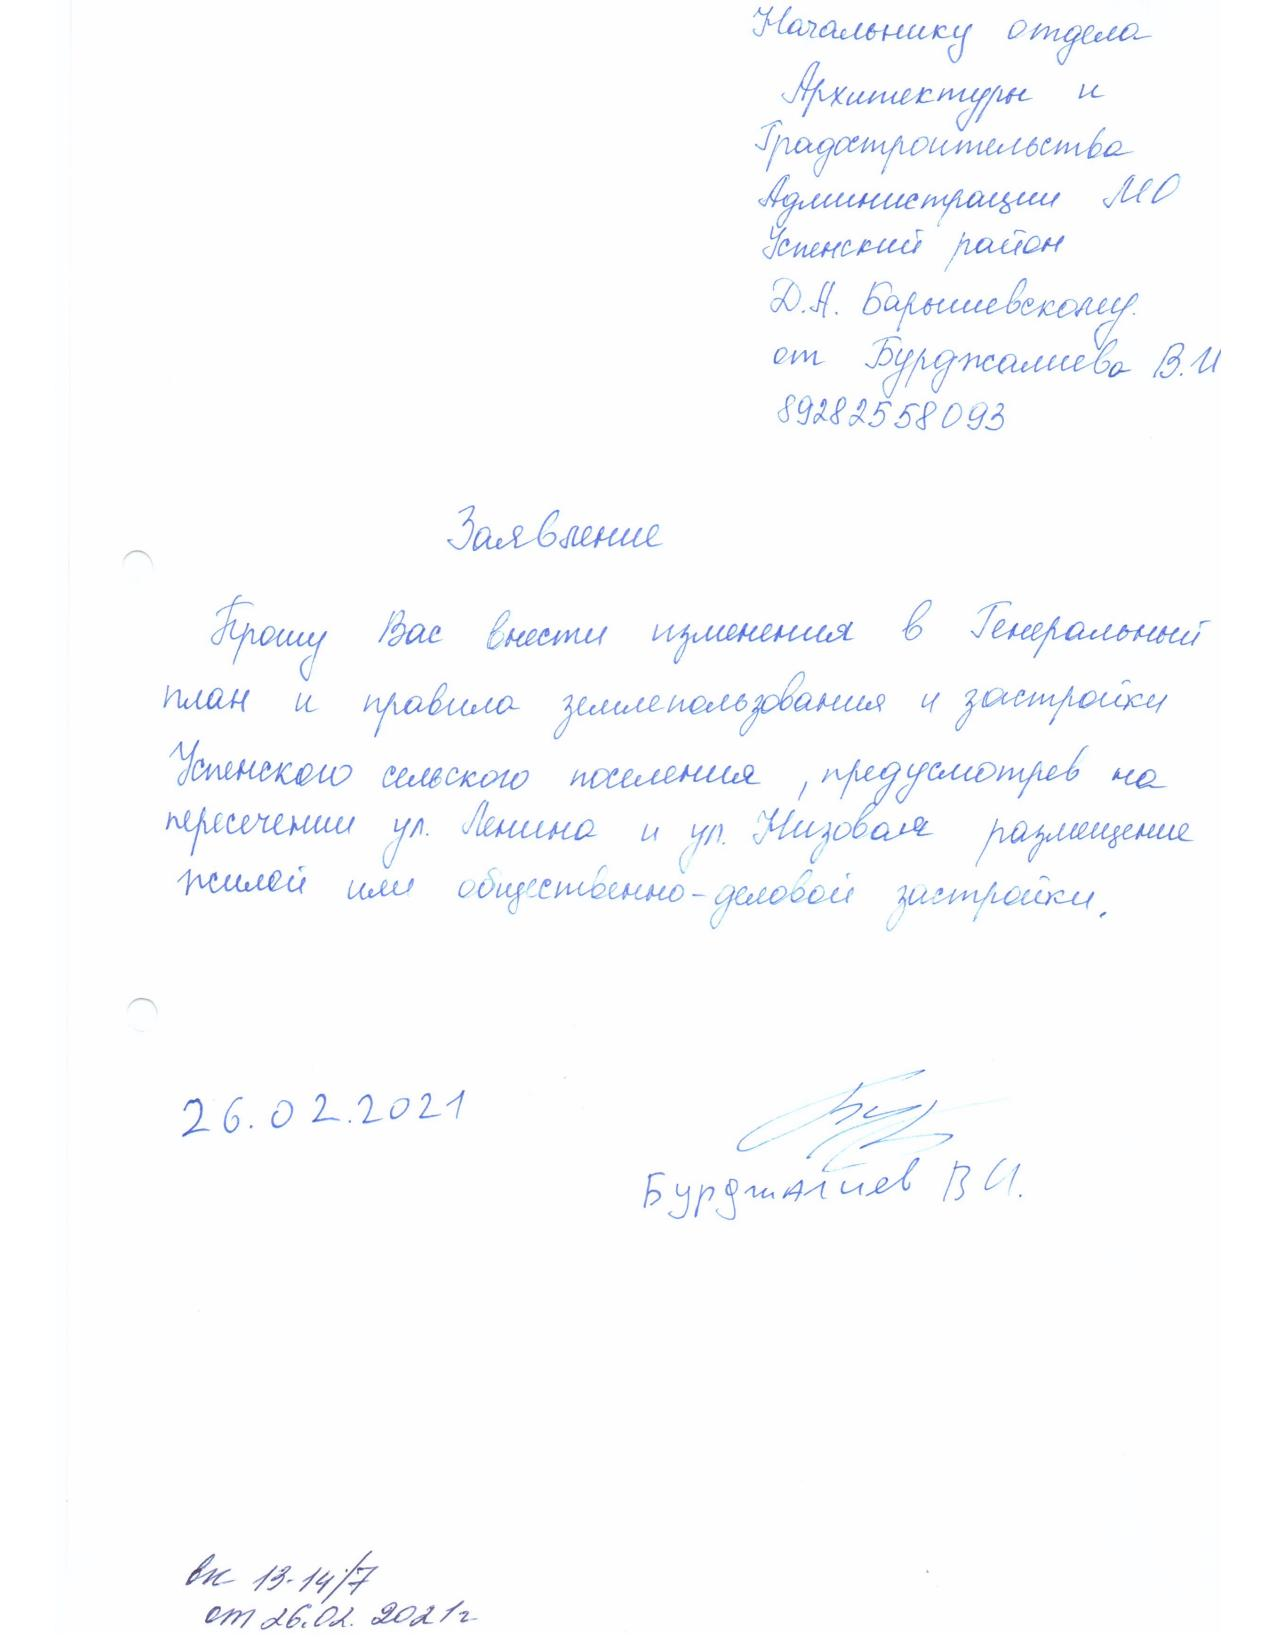 Начальнику отдела
Архитектуры и
Градостроительства
Администрации МО
Успенский район
Д.А. Барышевскому.
от Бурджалиева В.И
89282558093
Заявление
Прошу Вас внести изменения в Генеральный
план и правила землепользования и застройки
Успенского сельского поселения, предусмотрев на
пересечении ул. Ленина и ул. Низовая размещение
жилой или общественно-деловой застройки.
26.02.2021
Бурджалиев В И.
вх 13-14/7
от 26.02.2021г